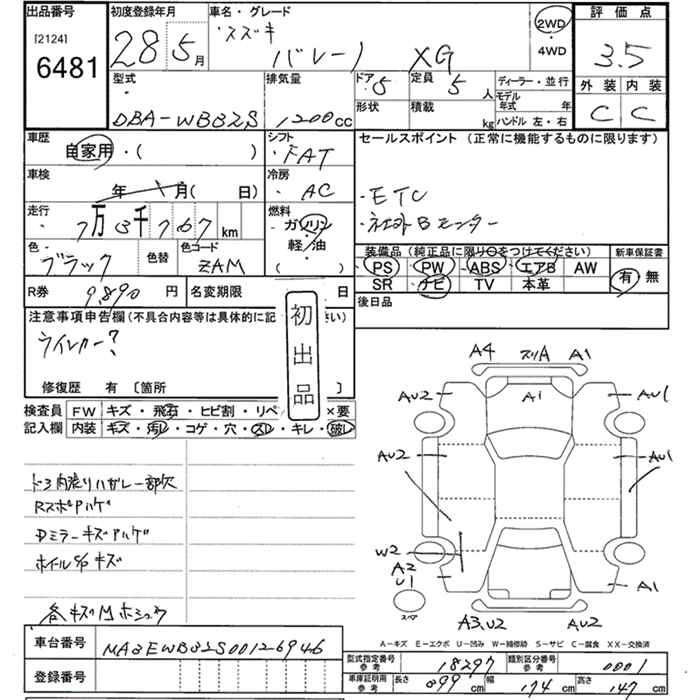 出品番号
[2124]
6481
初度登録年月
28 5月
車名・グレード
スズキ
バレーノ XG
2WD・4WD
評価点
3.5
外装 内装
C C
型式
DBA-WB32S
排気量
1200cc
ドア 5
定員 5人
形状
積載 kg
ディーラー・並行
モデル年式 年
ハンドル 左・右
車歴
自家用・( )
シフト
FAT
セールスポイント (正常に機能するものに限ります)
・ETC
車検
年 月( 日)
冷房
AC
走行
7万3千767km
燃料
ガソリン・軽油
( )
色
ブラック
色替
色コード
ZAM
装備品 (純正品に限り○をつけてください)
PS PW ABS エアB AW
SR ナビ TV 本革
新車保証書
有 無
R券 9,890円
名変期限 日
後日品
注意事項申告欄(不具合内容等は具体的に記 さい)
初出品
修復歴 有 〔箇所 〕
検査員記入欄
FW キズ・飛石・ヒビ割・リペ ×要
内装 キズ・汚レ・コゲ・穴・スレ・キレ・破レ
ドア内張りハガレ一部欠
RスポPハゲ
DミラーキズPハゲ
ホイルC/Pキズ
各キズMホシュウ
A4 スリA A1
AU2 A1 AU1
AU2 AU1
W2
A2
U1
スペア
A1
A3.U2 AU2
A−キズ E−エクボ U−凹み W−補修跡 S−サビ C−腐食 XX−交換済
車台番号
MA3EWB32S00126946
登録番号
型式指定番号 参考 18297
類別区分番号 参考 0001
車庫証明用 参考
長さ 399cm
幅 174cm
高さ 147cm